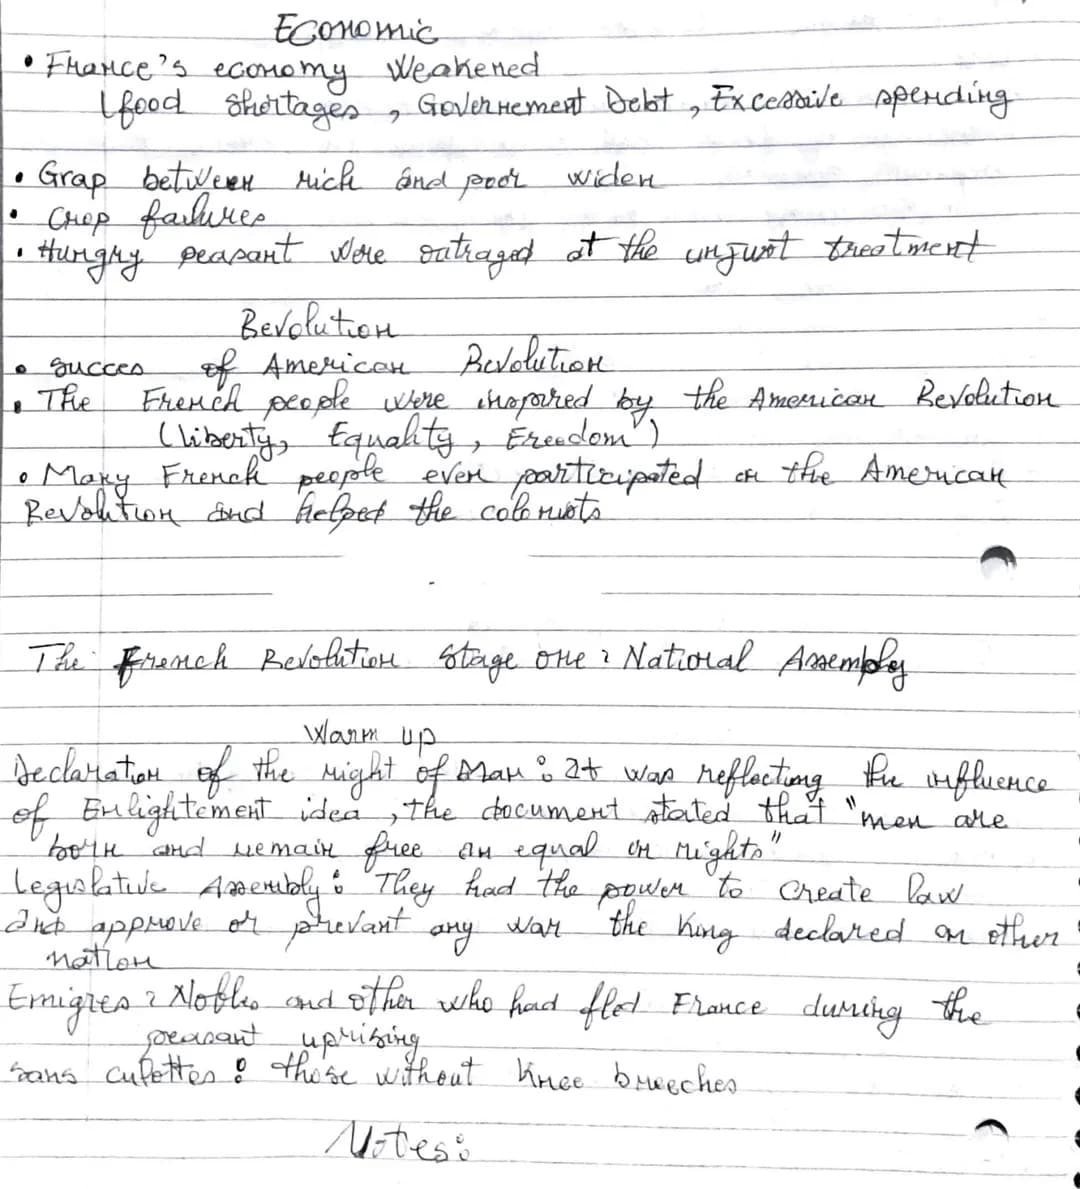 Economic
• France's economy Weakened
(food shortages, Governement Debt, Excessive spending
• Grap between rich and poor widen
• Crop failures
• Hungry peasant were outraged at the unjust treatment
Revolution
• succes of American Revolution
• The French people were inspired by the American Revolution
(liberty, Equality, Freedom)
• Many French people even participated on the American
Revolution and helped the colonists
The French Revolution Stage one : National Assembly
Warm up
Declaration of the right of Man : It was reflecting the influence
of Enlightement idea, the document stated that "men are
born and remain free an equal in rights"
Legislative Assembly : They had the power to create law
and approve or prevant any war the King declared on other
nation
Emigres : Nobles and other who had fled France during the
peasant uprising
sans culettes : those without knee breeches
Notes: